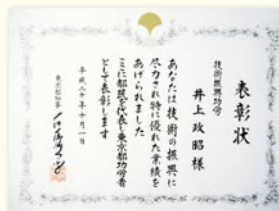 表彰状
技術振興功労
井上政昭様
あなたは技術の振興に
尽力され特に優れた業績を
あげられました
ここに都民を代表し東京都功労者
として表彰します
平成二十年十月一日
東京都知事